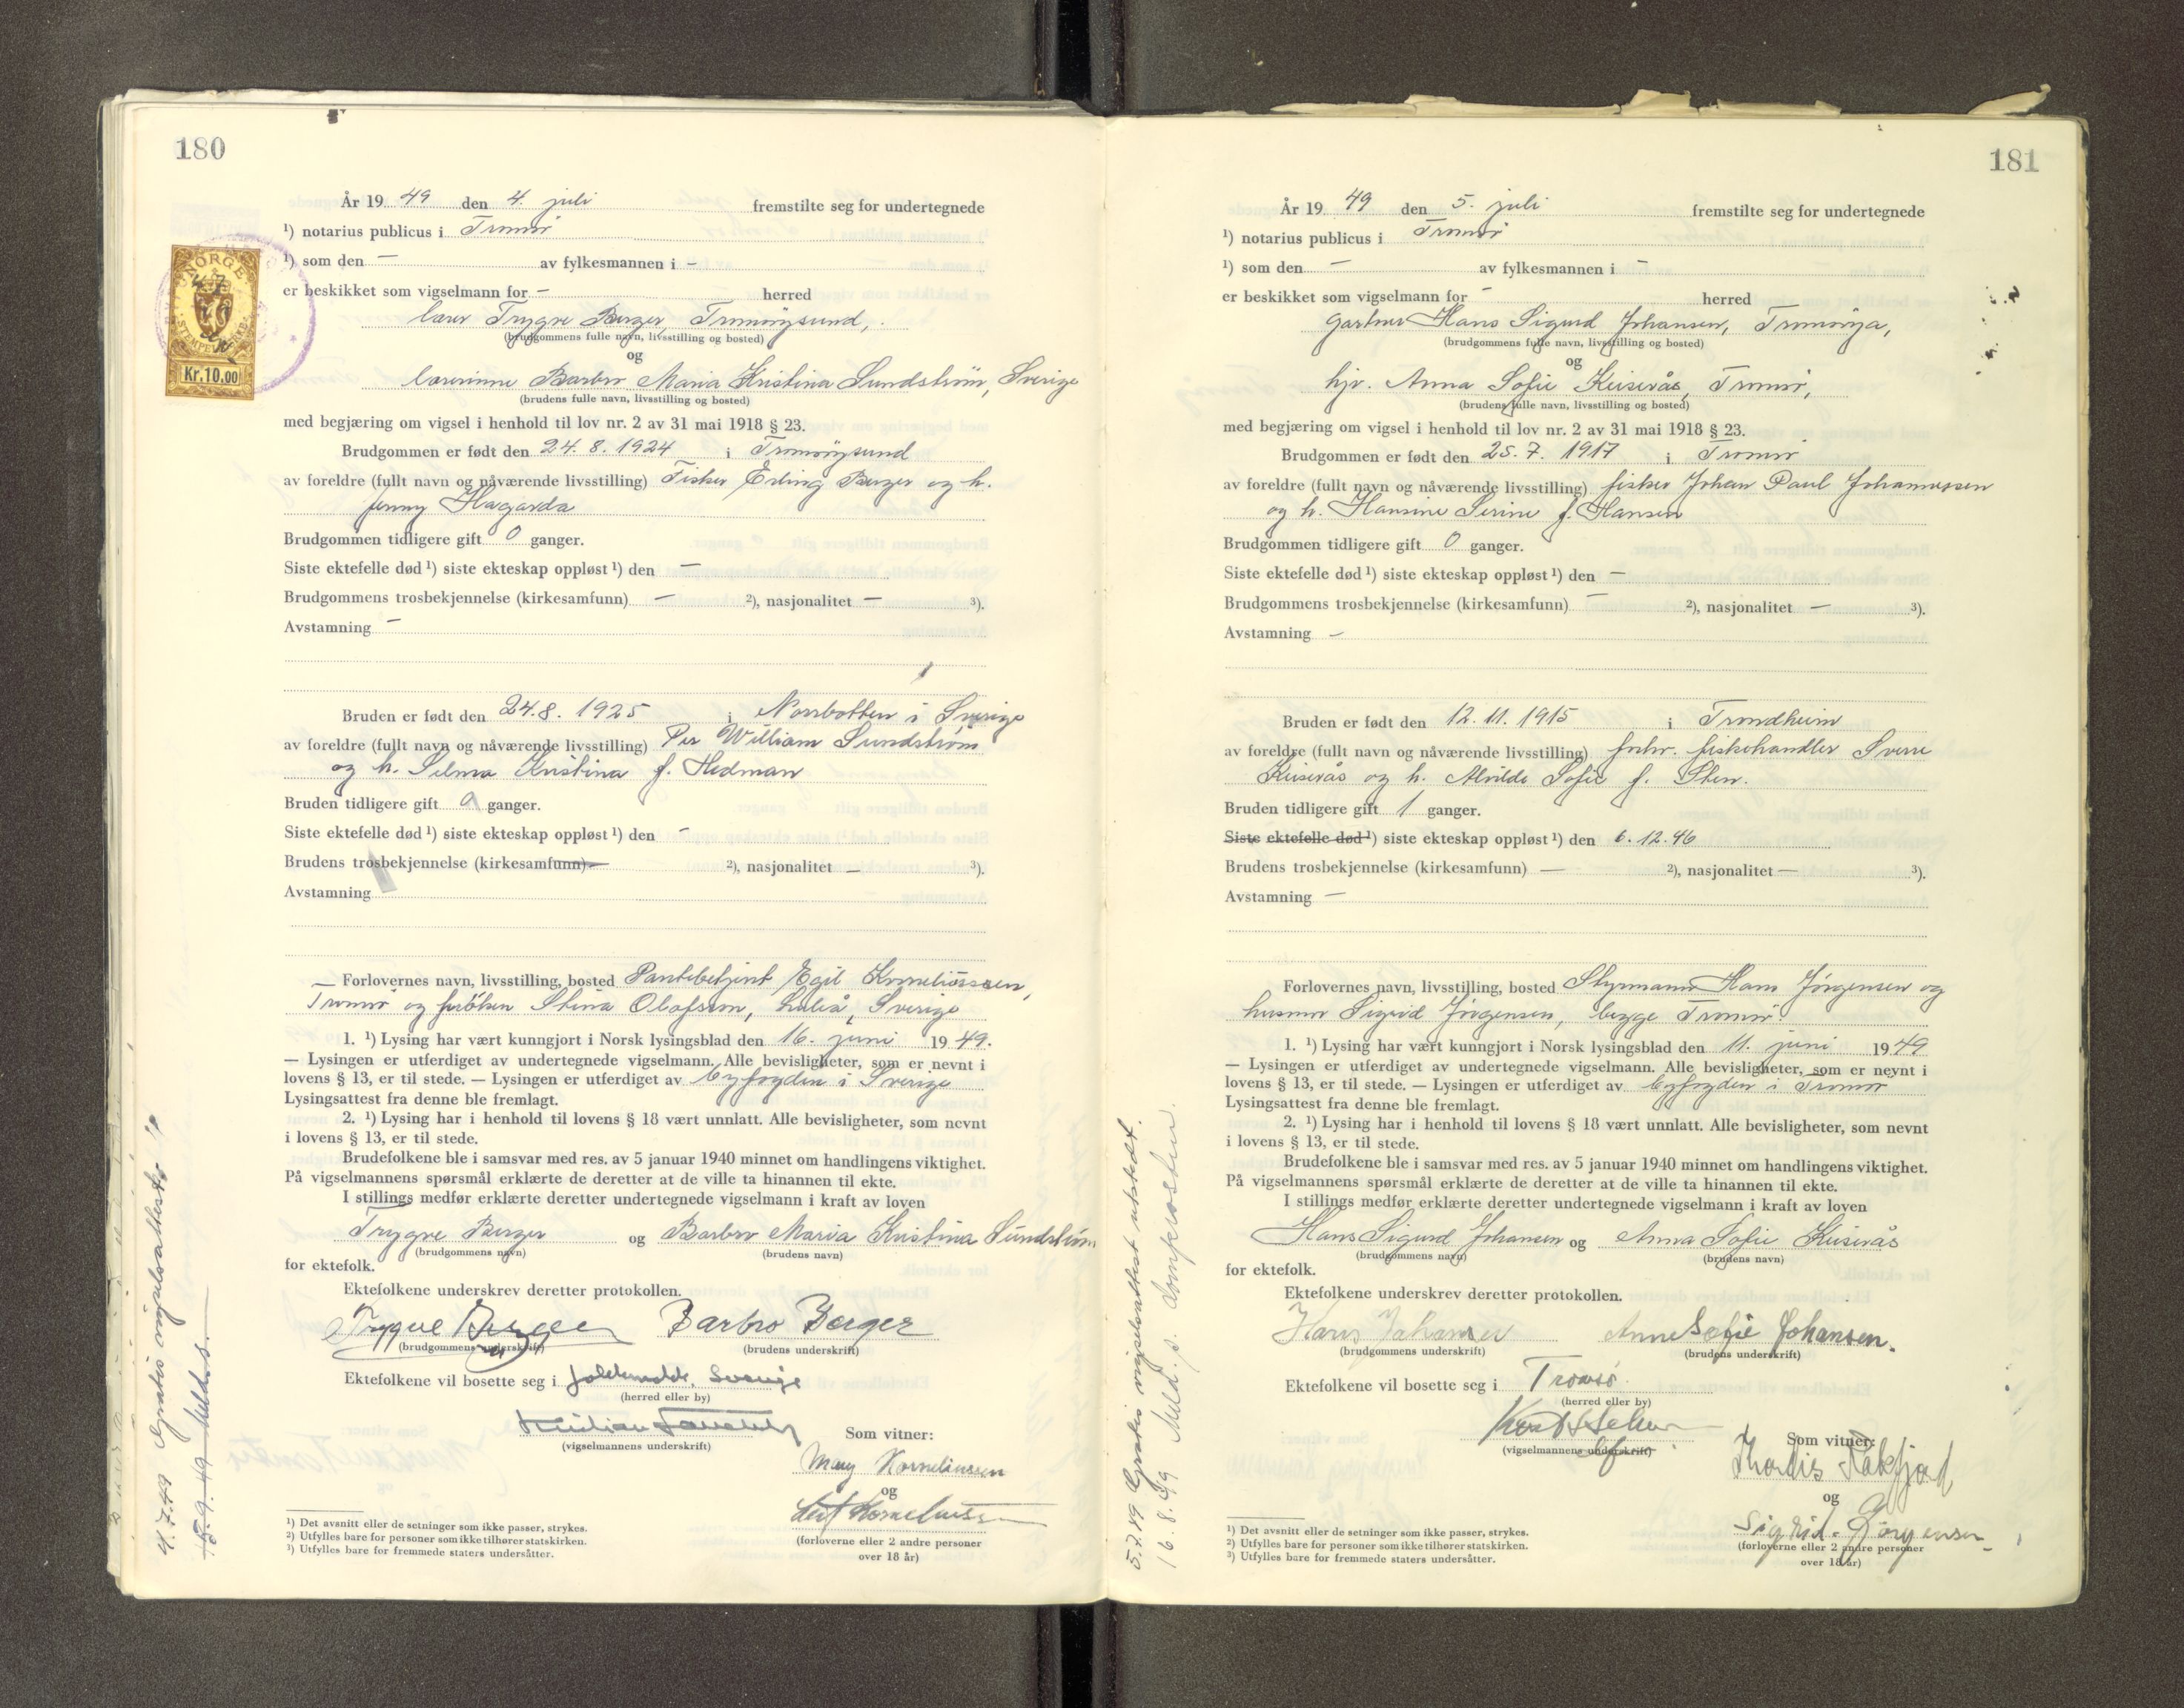 180
År 1949 den 4. juli fremstilte seg for undertegnede
¹) notarius publicus i Tromsø
¹) som den — av fylkesmannen i —
er beskikket som vigselmann for — herred
lærer Trygve Berger, Tromsøysund,
(brudgommens fulle navn, livsstilling og bosted)
og
lærerinne Barbro Maria Kristina Sundström, Sverige
(brudens fulle navn, livsstilling og bosted)
med begjæring om vigsel i henhold til lov nr. 2 av 31 mai 1918 § 23.
Brudgommen er født den 24. 8. 1924 i Tromsøysund
av foreldre (fullt navn og nåværende livsstilling) Fisker Erling Berger og h.
Jenny Hagarda
Brudgommen tidligere gift 0 ganger.
Siste ektefelle død ¹) siste ekteskap oppløst ¹) den —
Brudgommens trosbekjennelse (kirkesamfunn) — ²), nasjonalitet — ³).
Avstamning —
Bruden er født den 24.8. 1925 i Norrbotten i Sverige
av foreldre (fullt navn og nåværende livsstilling) Per William Sundström
og h. Selma Kristina f. Hedman
Bruden tidligere gift 0 ganger.
Siste ektefelle død ¹) siste ekteskap oppløst ¹) den —
Brudens trosbekjennelse (kirkesamfunn) — ²), nasjonalitet — ³).
Avstamning
Forlovernes navn, livsstilling, bosted Pantebetjent Egil Korneliussen,
Tromsø og fröken Stina Olofsson, Luleå, Sverige
1. ¹) Lysing har vært kunngjort i Norsk lysingsblad den 16. juni 1949.
— Lysingen er utferdiget av undertegnede vigselmann. Alle bevisligheter, som er nevnt i
lovens § 13, er til stede. — Lysingen er utferdiget av byfogden i Sverige
Lysingsattest fra denne ble fremlagt.
2. ¹) Lysing har i henhold til lovens § 18 vært unnlatt. Alle bevisligheter, som nevnt
i lovens § 13, er til stede.
Brudefolkene ble i samsvar med res. av 5 januar 1940 minnet om handlingens viktighet.
På vigselmannens spørsmål erklærte de deretter at de ville ta hinannen til ekte.
I stillings medfør erklærte deretter undertegnede vigselmann i kraft av loven
Trygve Berger og Barbro Maria Kristina Sundström
(brudgommens navn) (brudens navn)
for ektefolk.
Ektefolkene underskrev deretter protokollen.
Trygve Berger Barbro Berger
(brudgommens underskrift) (brudens underskrift)
Ektefolkene vil bosette seg i Sverige
(herred eller by)
(vigselmannens underskrift)
Som vitner:
Mary Korneliussen
og
Leif Korneliussen
(forloverne eller 2 andre personer
over 18 år)
¹) Det avsnitt eller de setninger som ikke passer, strykes.
²) Utfylles bare for personer som ikke tilhører statskirken.
³) Utfylles bare for fremmede staters undersåtter.
4.7.49 Gratis vigselsattest
15.9.49 Meld s.
NORGE
STEMPELMERKE
Kr.10,00
181
År 1949 den 5. juli fremstilte seg for undertegnede
¹) notarius publicus i Tromsø
¹) som den — av fylkesmannen i —
er beskikket som vigselmann for — herred
gartner Hans Sigurd Johansen, Tromsøya,
(brudgommens fulle navn, livsstilling og bosted)
og
hjv. Anna Sofie Keiserås, Tromsø,
(brudens fulle navn, livsstilling og bosted)
med begjæring om vigsel i henhold til lov nr. 2 av 31 mai 1918 § 23.
Brudgommen er født den 25. 7. 1917 i Tromsø
av foreldre (fullt navn og nåværende livsstilling) fisker Johan Paul Johannessen
og h. Hansine Serine f. Hansen
Brudgommen tidligere gift 0 ganger.
Siste ektefelle død ¹) siste ekteskap oppløst ¹) den —
Brudgommens trosbekjennelse (kirkesamfunn) — ²), nasjonalitet — ³).
Avstamning —
Bruden er født den 12. 11. 1915 i Trondheim
av foreldre (fullt navn og nåværende livsstilling) forhv. fiskehandler Sverre
Keiserås og h. Alvilde Sofie f. Sten.
Bruden tidligere gift 1 ganger.
Siste ektefelle død ¹) siste ekteskap oppløst ¹) den 6. 12. 46
Brudens trosbekjennelse (kirkesamfunn) — ²), nasjonalitet — ³).
Avstamning —
Forlovernes navn, livsstilling, bosted Styrmann Hans Jørgensen og
husmor Sigrid Jørgensen, begge Tromsø.
1. ¹) Lysing har vært kunngjort i Norsk lysingsblad den 11. juni 1949
— Lysingen er utferdiget av undertegnede vigselmann. Alle bevisligheter, som er nevnt i
lovens § 13, er til stede. — Lysingen er utferdiget av byfogden i Tromsø
Lysingsattest fra denne ble fremlagt.
2. ¹) Lysing har i henhold til lovens § 18 vært unnlatt. Alle bevisligheter, som nevnt
i lovens § 13, er til stede.
Brudefolkene ble i samsvar med res. av 5 januar 1940 minnet om handlingens viktighet.
På vigselmannens spørsmål erklærte de deretter at de ville ta hinannen til ekte.
I stillings medfør erklærte deretter undertegnede vigselmann i kraft av loven
Hans Sigurd Johansen og Anna Sofie Keiserås
(brudgommens navn) (brudens navn)
for ektefolk.
Ektefolkene underskrev deretter protokollen.
Hans Johansen Anne Sofie Johansen.
(brudgommens underskrift) (brudens underskrift)
Ektefolkene vil bosette seg i Tromsø.
(herred eller by)
(vigselmannens underskrift)
Som vitner:
Thordis
og
Sigrid Jörgensen
(forloverne eller 2 andre personer
over 18 år)
¹) Det avsnitt eller de setninger som ikke passer, strykes.
²) Utfylles bare for personer som ikke tilhører statskirken.
³) Utfylles bare for fremmede staters undersåtter.
5.7.49 Gratis vigselsattest utstedt.
16.8.49 Meld. s. domprosten.